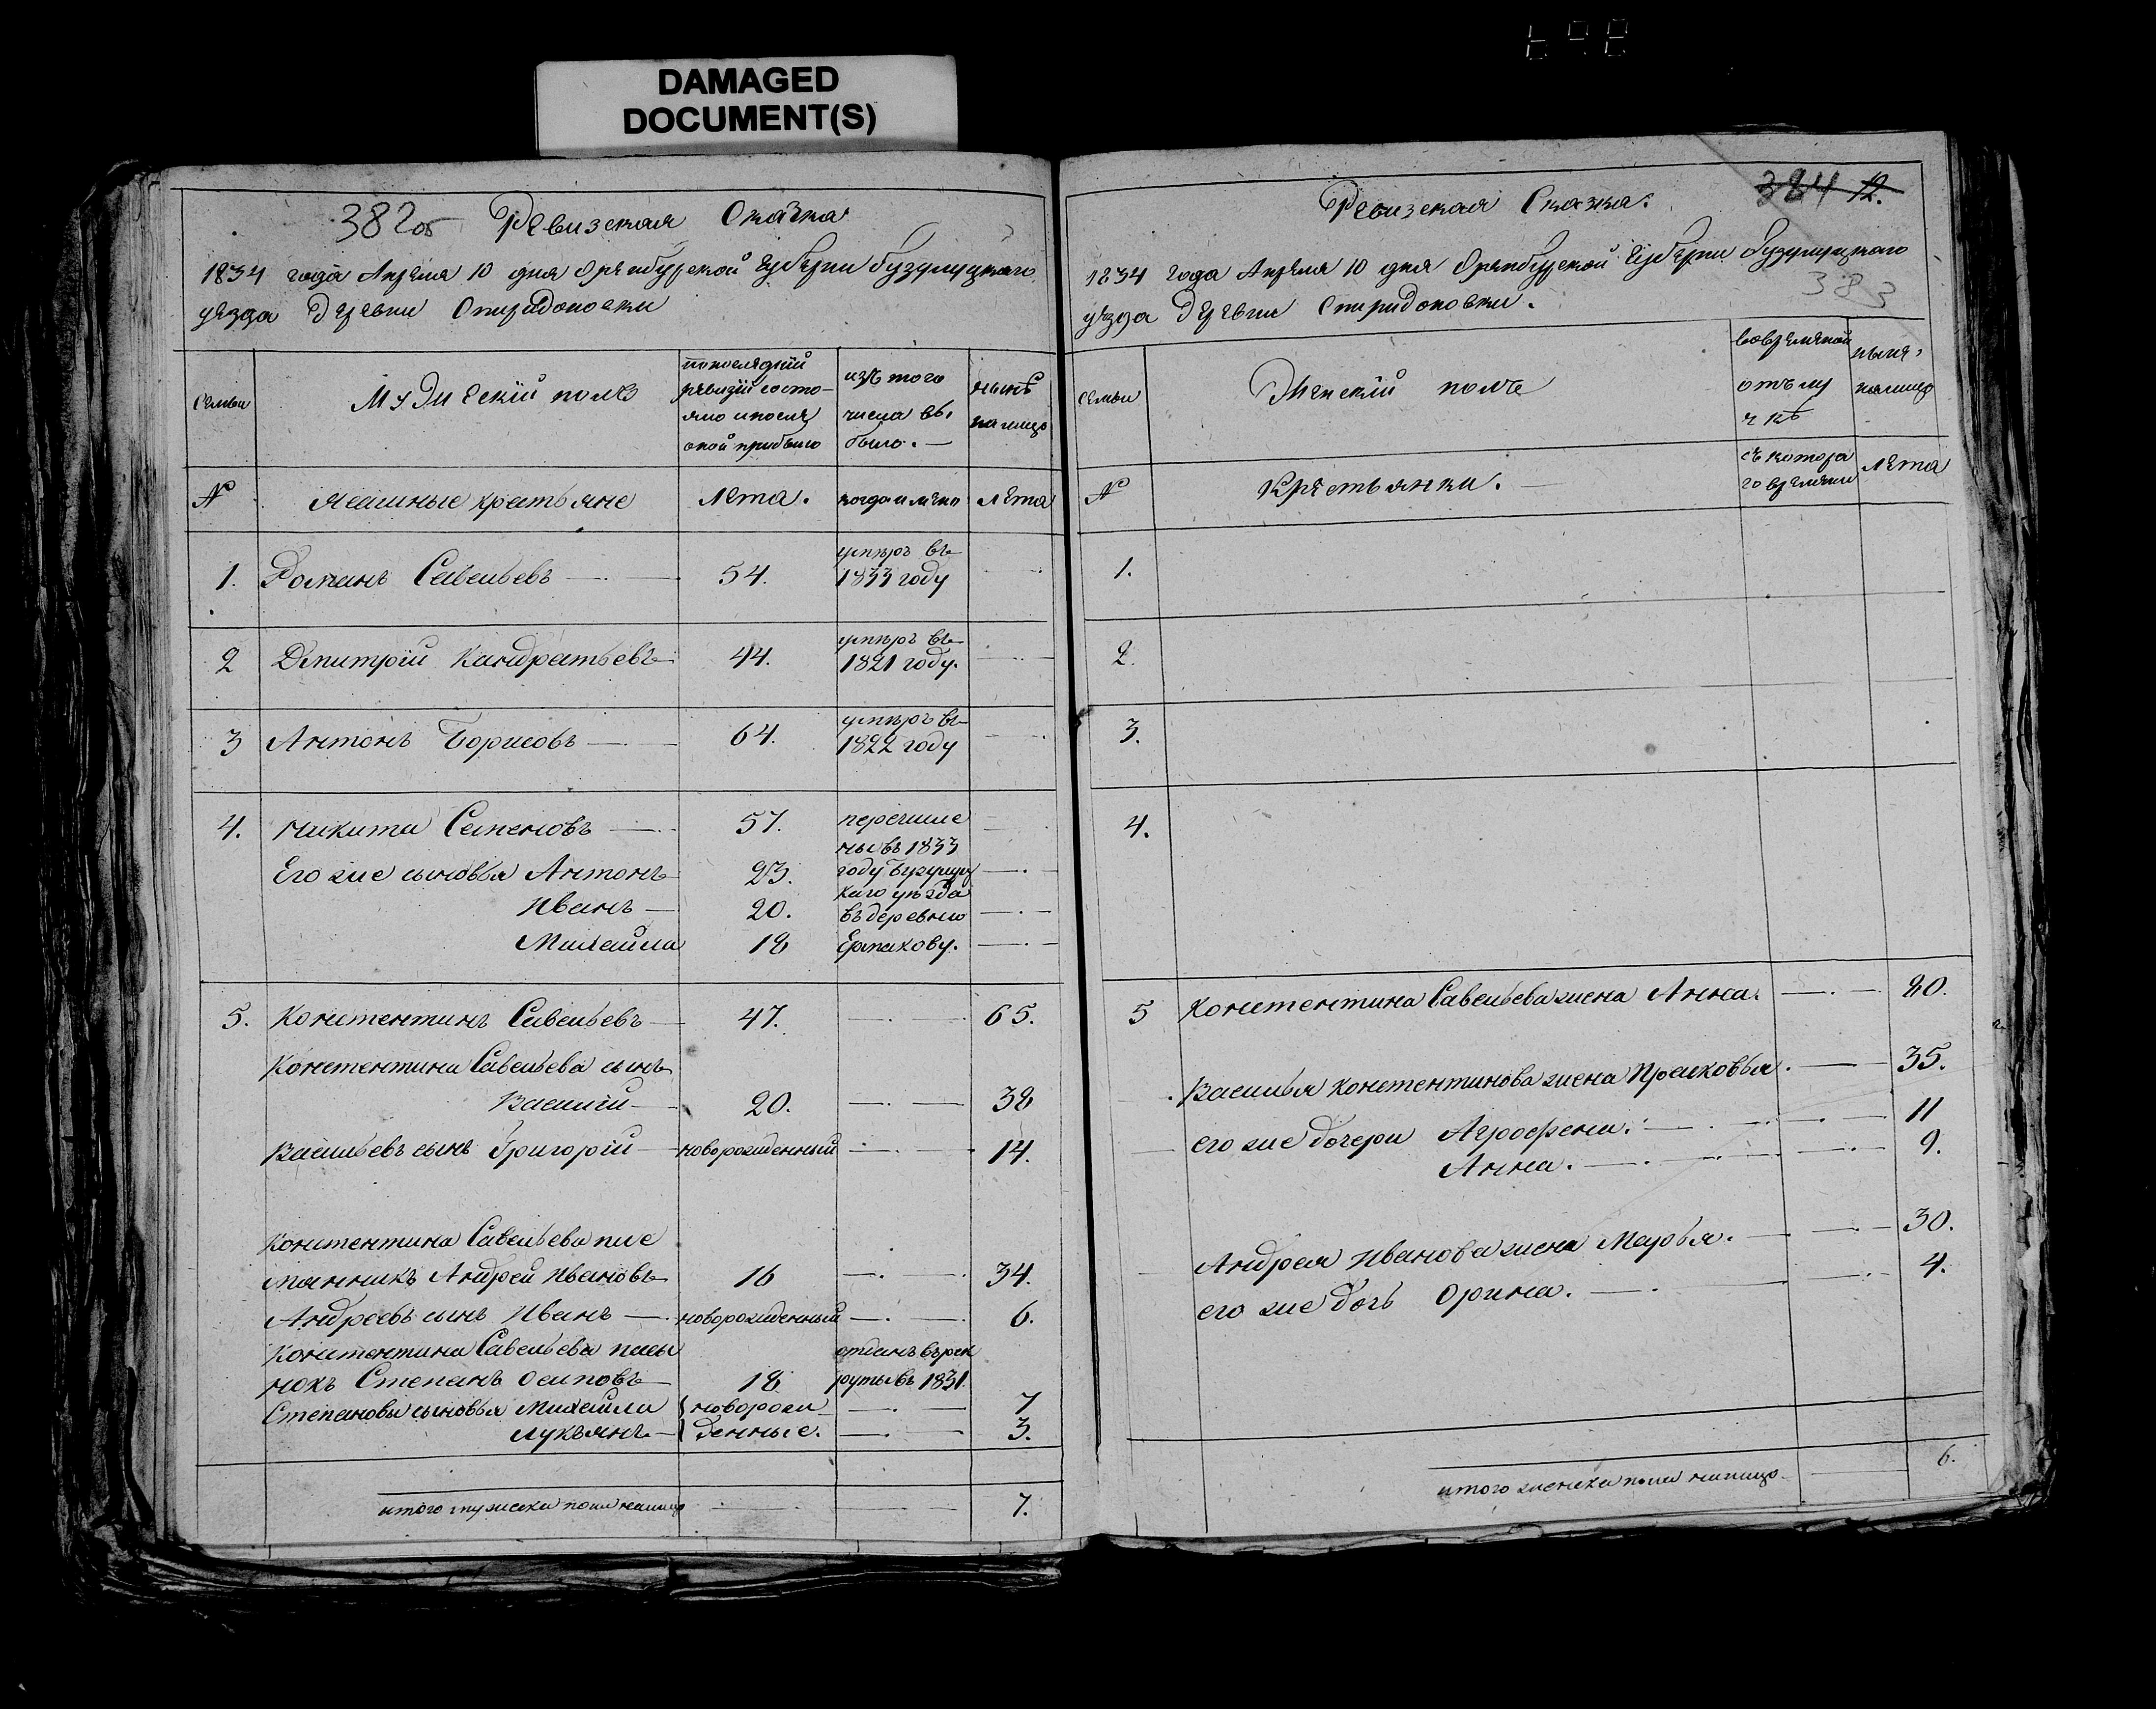 DAMAGED
DOCUMENT(S)
382об Ревизская Сказка
1834 года Апреля 10 дня Оренбургской губерни бузулуцкаго
уезда деревни Спиридоновки
семьи
Мужескій полъ
попоследней
ревизіи состо-
яло и после
оной прибыло
изъ того
числа вы
было. —
ныне
на лицо
№
Ясашные крестьяне
лета.
когда и имено
лета
1. Романъ Савельевъ — 54. умеръ въ
1833 году
2 Дмитрій Кандратьевъ 44. умеръ въ
1821 году.
3 Антонъ Борисовъ — 64. умеръ въ
1822 году
4. Никита Семеновъ — 57. перечисле
ны въ 1833
Его же сыновья Антонъ 23. году Бузулуц
каго уезда
Иванъ — 20. въ деревню
Михайла 18 Ермакову.
5. Констентинъ Савельевъ — 47. 65.
Констентина Савельева сынъ
Василий — 20. 38
Васильевъ сынъ Григорій — новорожденный 14.
Констентина Савельева пле
мянникъ Андрей Ивановъ 16 34.
Андреевъ сынъ Иванъ — новорожденный 6.
Констентина Савельева пасы
нокъ Степанъ Осиповъ 18 отданъ въ рек
руты въ 1831.
Степановы сыновья Михайла новорож 7
Лукьянъ — денные. 3.
итого мужеска пола налицо 7.
Ревизская Сказка. 384 12.
1834 года Апреля 10 дня Оренбургской губерни бузулуцкаго
383
уезда деревни Спиридоновки.
семьи
Женскій полъ
во временной
отлу
чкѣ
ныне
налицо
№
Крестьянки. —
съ котора
го времени
лета
1.
2.
3.
4.
5 Констентина Савельева жена Анна. 80.
Василья Констентинова жена Прасковья. 35.
его же дочери Агрофена. 11
Анна. 9.
Андрея Иванова жена Марья. 30.
его же дочь Орина. 4.
итого женска пола налицо 6.